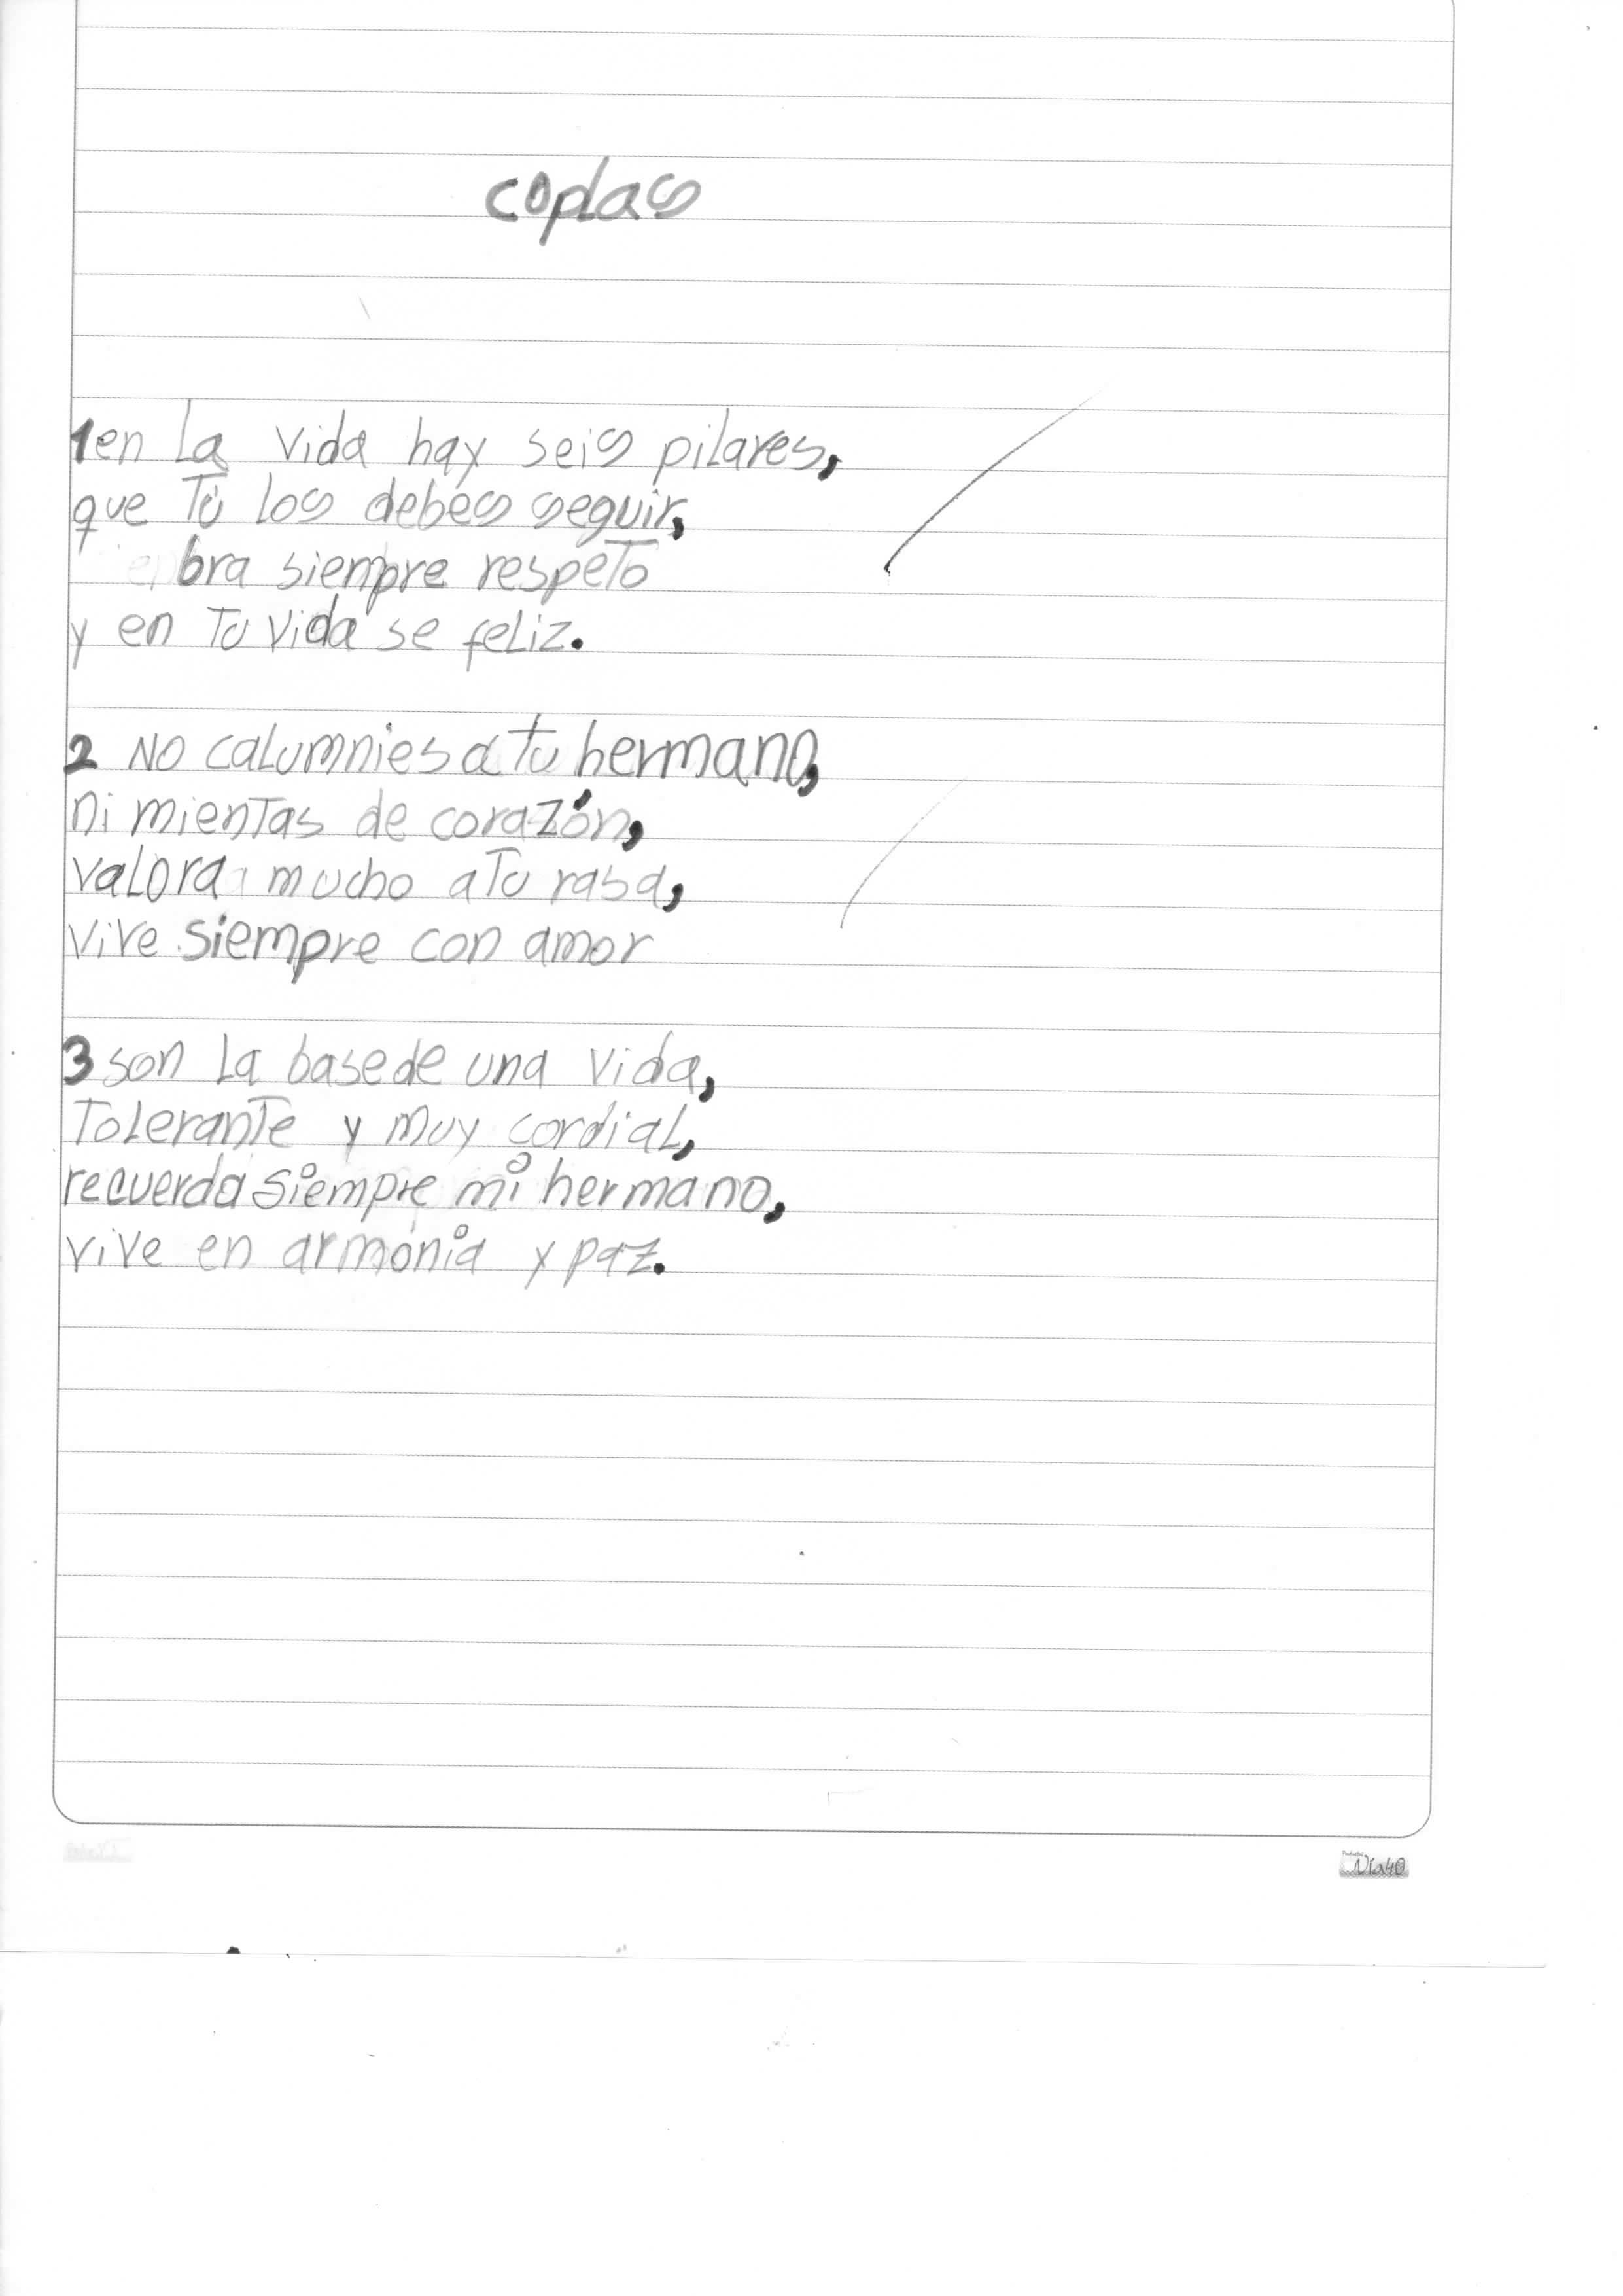 coplas
1 en la vida hay seis pilares,
que Tú los debes seguir,
bra siempre respeto
y en Tu vida se feliz.
2 No calumnies a tu hermano,
ni mientas de corazón,
valora mucho a Tu rasa,
vive siempre con amor
3 son la base de una vida,
Tolerante y muy cordial,
recuerda siempre mi hermano,
vive en armónia y paz.